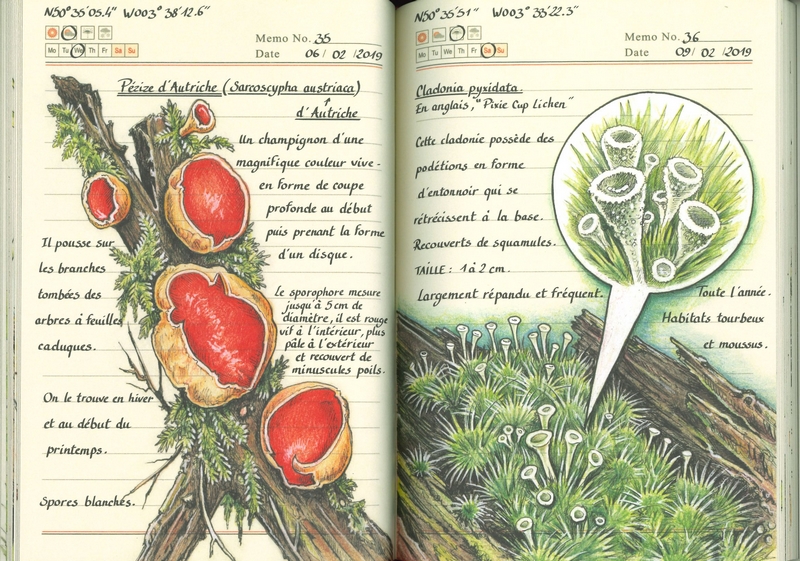 N50°35'05.4" W003°38'12.6"
Mo Tu We Th Fr Sa Su
Memo No. 35
Date 06 / 02 / 2019
Pézize d'Autriche (Sarcoscypha austriaca)
d'Autriche
Un champignon d'une
magnifique couleur vive -
en forme de coupe
profonde au début
puis prenant la forme
d'un disque.
Il pousse sur
les branches
tombées des
arbres à feuilles
caduques.
Le sporophore mesure
jusqu'à 5 cm de
diamètre, il est rouge
vif à l'intérieur, plus
pâle à l'extérieur
et recouvert de
minuscules poils.
On le trouve en hiver
et au début du
printemps.
Spores blanches.
N50°35'51" W003°33'22.3"
Mo Tu We Th Fr Sa Su
Memo No. 36
Date 09 / 02 / 2019
Cladonia pyxidata.
En anglais, "Pixie Cup Lichen"
Cette cladonie possède des
podétions en forme
d'entonnoir qui se
rétrécissent à la base.
Recouverts de squamules.
TAILLE : 1 à 2 cm.
Largement répandu et fréquent.
Toute l'année.
Habitats tourbeux
et moussus.